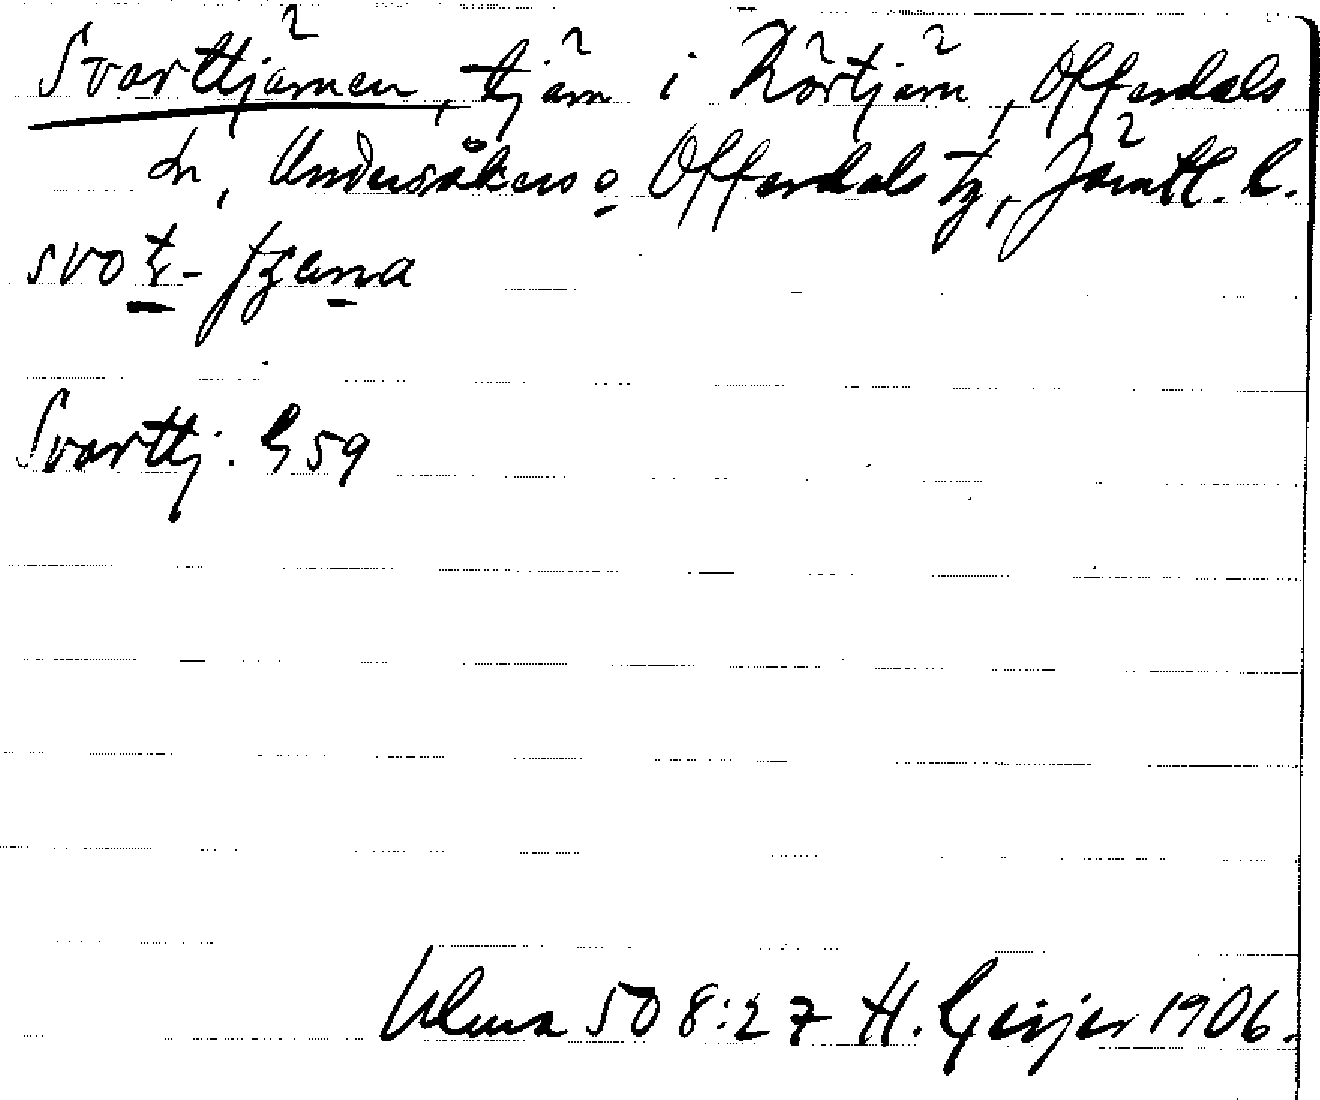 Svarttjärnen, tjärn i Rörtjärn, Offerdals
sn, Undersåkers o Offerdals tg, Jämtl. l.
Svarttj. G 59
Ulma 508:27 H. Geijer 1906.